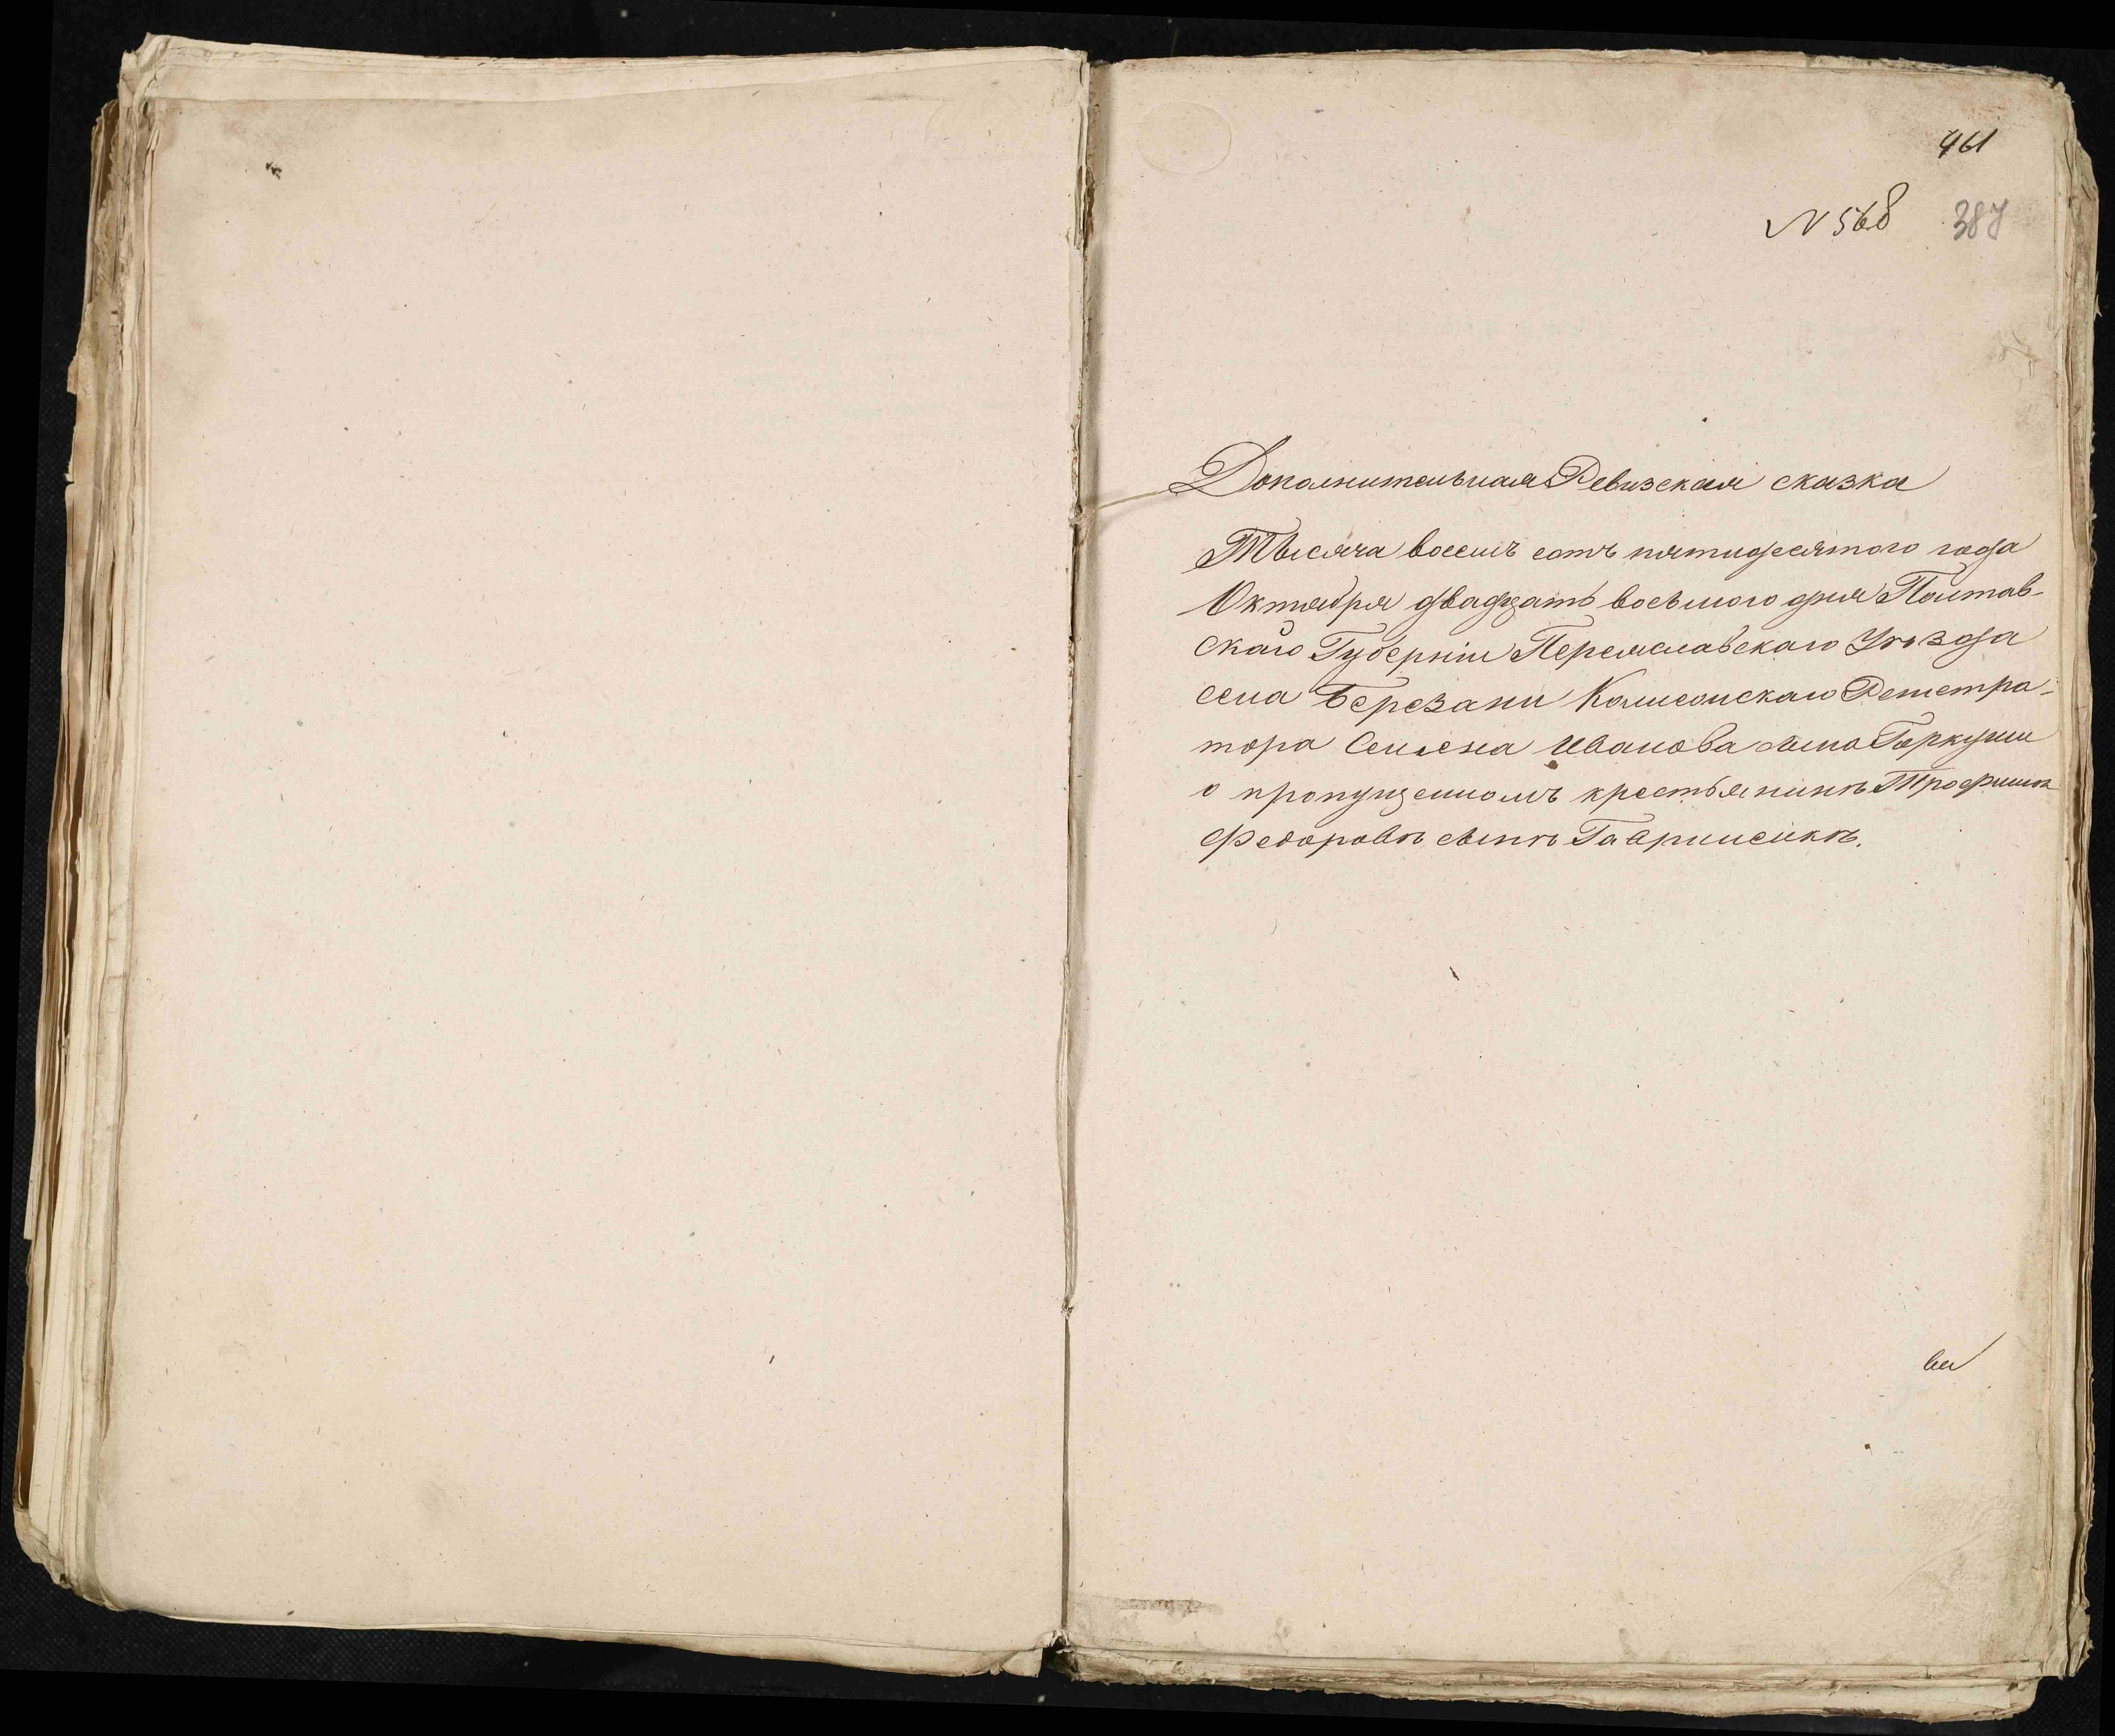 461
N 568 387
Дополнительная Ревизская сказка
Тысяча восемъ сотъ пятидесятого года
Октября двадцать восьмого дня Полтав-
скаго Губерніи Переяславскаго Уѣзда
села Березани Колежскаго Регистра-
тора Семена Иванова сына Гаркуши
о пропущенномъ крестьянинѣ Трофимѣ
Федоровѣ сынѣ Гаврисенкѣ.